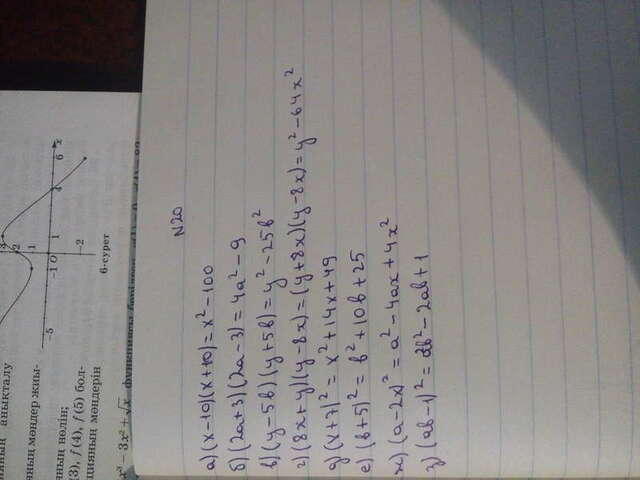 анықталу
3
2
1
-5
-1 O
1
4
6
x
-2
ның мәндер жиы-
ның нөлін;
(3), f(4), f(5) бол-
цияның мәндерін
6-сурет
x³ − 3x² + √x функциясы берілген.
N20
а) (x-10)(x+10)=x²-100
б) (2a+3)(2a-3)=4a²-9
в) (y-5b)(y+5b)=y²-25b²
г) (8x+y)(y-8x)=(y+8x)(y-8x)=y²-64x²
д) (x+7)²=x²+14x+49
е) (b+5)²=b²+10b+25
ж) (a-2x)²=a²-4ax+4x²
з) (ab-1)²= b²-2ab+1